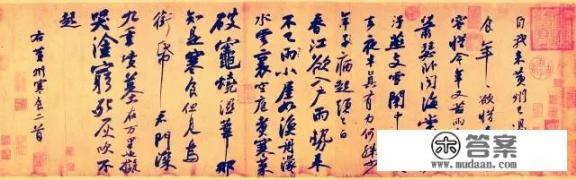 自我来黄州已過
食年々欲惜
容惜今年又苦雨
蕭瑟卧聞海棠
汙燕支雪闇中
去夜半真有力何殊
年子病起頭已白
春江欲入户雨勢来
不已雨小屋如漁舟濛
水雲裏空庖煮寒菜
破竈燒濕葦那
知是寒食但見烏
銜帋 君門深
九重墳墓在万里也擬
哭塗窮死灰吹不
起
右黄州寒食二首
木答案
www.mudaan.com